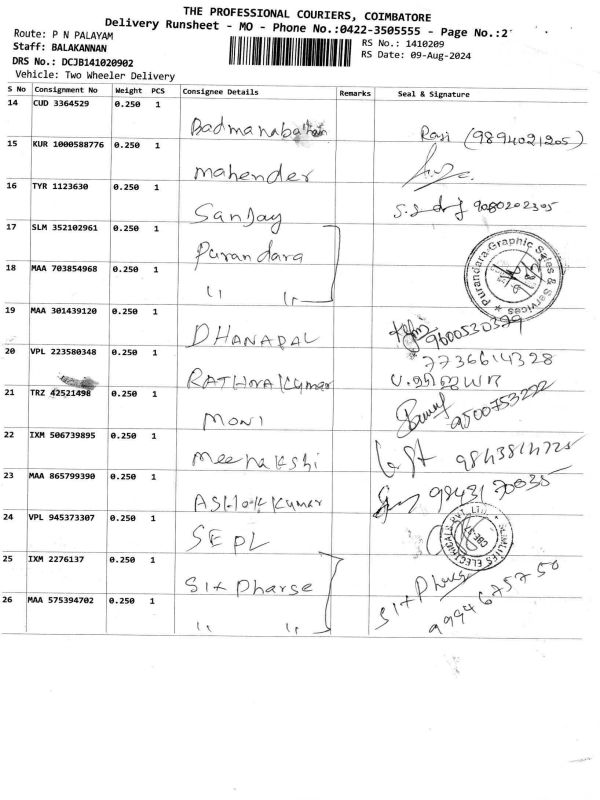 THE PROFESSIONAL COURIERS, COIMBATORE
Delivery Runsheet - MO - Phone No.:0422-3505555 - Page No.:2
Route: P N PALAYAM
Staff: BALAKANNAN
RS No.: 1410209
DRS No.: DCJB141020902
RS Date: 09-Aug-2024
Vehicle: Two Wheeler Delivery
S No Consignment No Weight PCS Consignee Details Remarks Seal & Signature
14 CUD 3364529 0.250 1
Ravi (9894021205)
15 KUR 1000588776 0.250 1
mahender
16 TYR 1123630 0.250 1
Sanjay 9080202305
17 SLM 352102961 0.250 1
Purandara
Purandara Graphic Sales & Services
18 MAA 703854968 0.250 1
" "
19 MAA 301439120 0.250 1
DHANAPAL 9600530399
20 VPL 223580348 0.250 1
7736614328
RATHNAKUmar
21 TRZ 42521498 0.250 1
MONI 9500753222
22 IXM 506739895 0.250 1
meenakshi
23 MAA 865799390 0.250 1
AShok Kumar 9843170035
24 VPL 945373307 0.250 1
SEPL
ELECTRICALS PVT. LTD.
CBE-37
25 IXM 2276137 0.250 1
Six Pharse
26 MAA 575394702 0.250 1
" "
9994675750